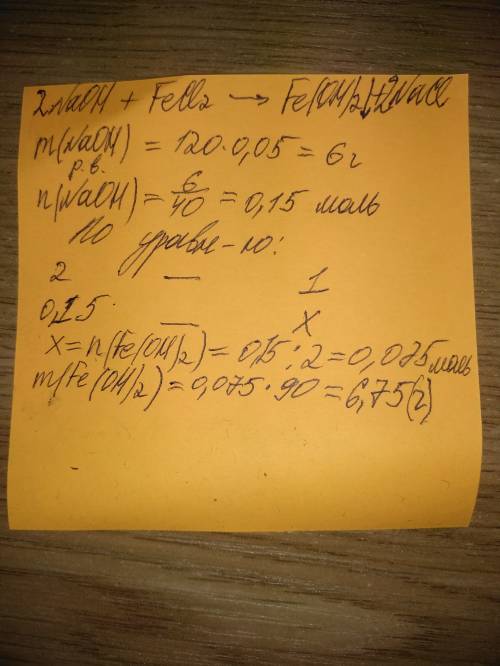 2NaOH + FeCl₂ → Fe(OH)₂↓+2NaCl
m(NaOH) = 120·0,05 = 6г
р.в.
n(NaOH) = 6/40 = 0,15 моль
По уравне-ю:
2 — 1
0,15 — x
x = n(Fe(OH)₂) = 0,15 : 2 = 0,075 моль
m(Fe(OH)₂) = 0,075 · 90 = 6,75(г)